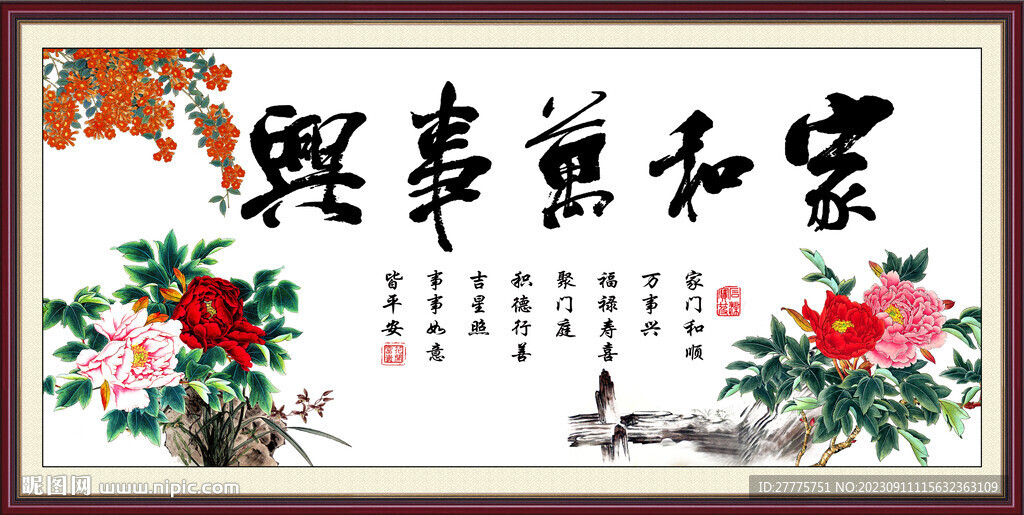 家和萬事興
家门和顺
万事兴
福禄寿喜
聚门庭
积德行善
吉星照
事事如意
皆平安
昵图网 www.nipic.com
ID:27775751 NO:20230911115632363109